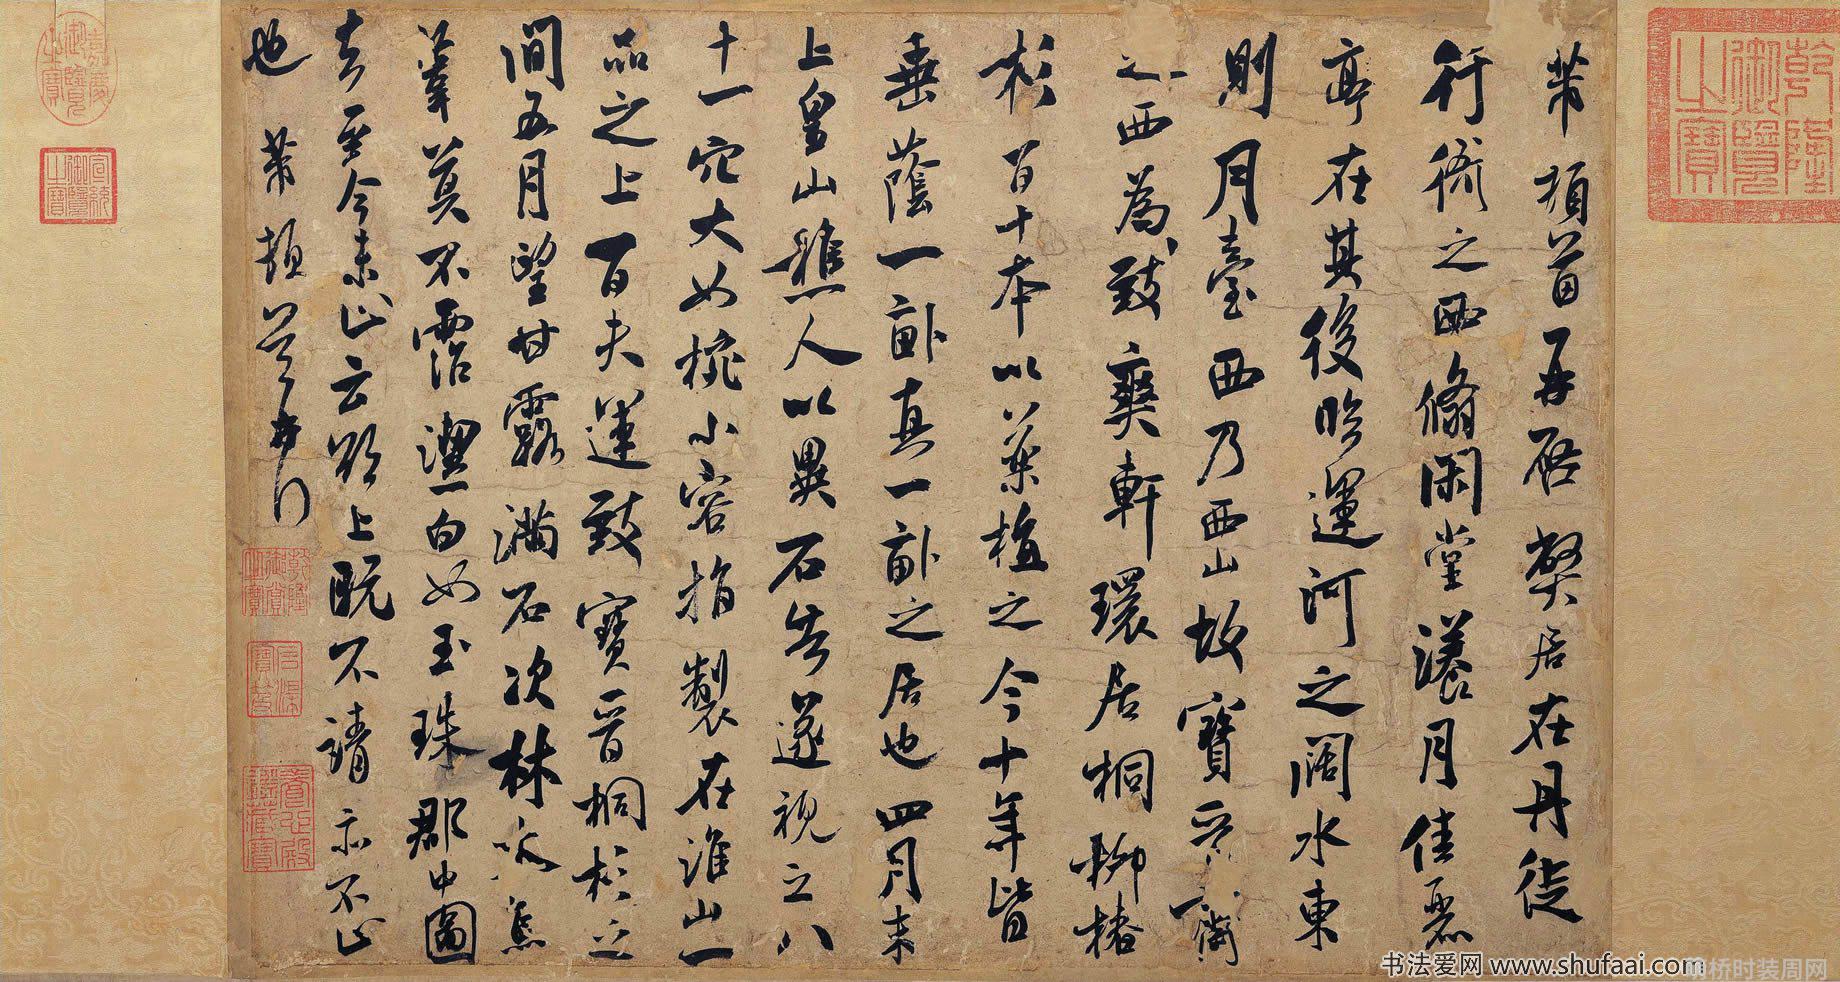 芾頓首再啓弊居在丹徒
行衙之西翛閑堂漾月佳麗
亭在其後臨運河之闊水東
則月臺西乃西山故寶晉齋
之西為致爽軒環居桐柳椿
杉百十本以藥植之今十年皆
垂蔭一畝真一畝之居也四月末
上皇山樵人以異石告遂視之八
十一穴大如椀小容指製在淮山一
品之上百夫運致寶晉桐杉之
間五月望甘露滿石次林木焦
葦莫不霑潔白如玉珠郡中圖
去至今未止云欲上既不請亦不止
也芾頓首再拜
嘉慶御覽之寶
宣統御覽之寶
乾隆御覽之寶
乾隆御賞之寶
石渠寶笈
養心殿鑑藏寶
书法爱网 www.shufaai.com
明桥时装周网